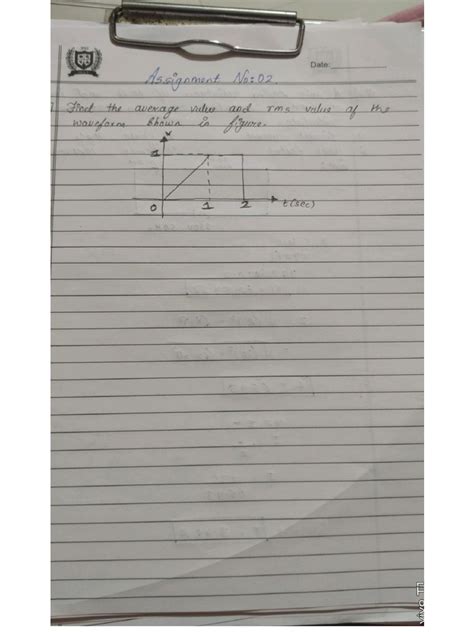 Date:
Assignment No:02.
Find the average value and rms value of the
waveform shown in figure.
V
1
0 1 2 t(sec)
vivo T1